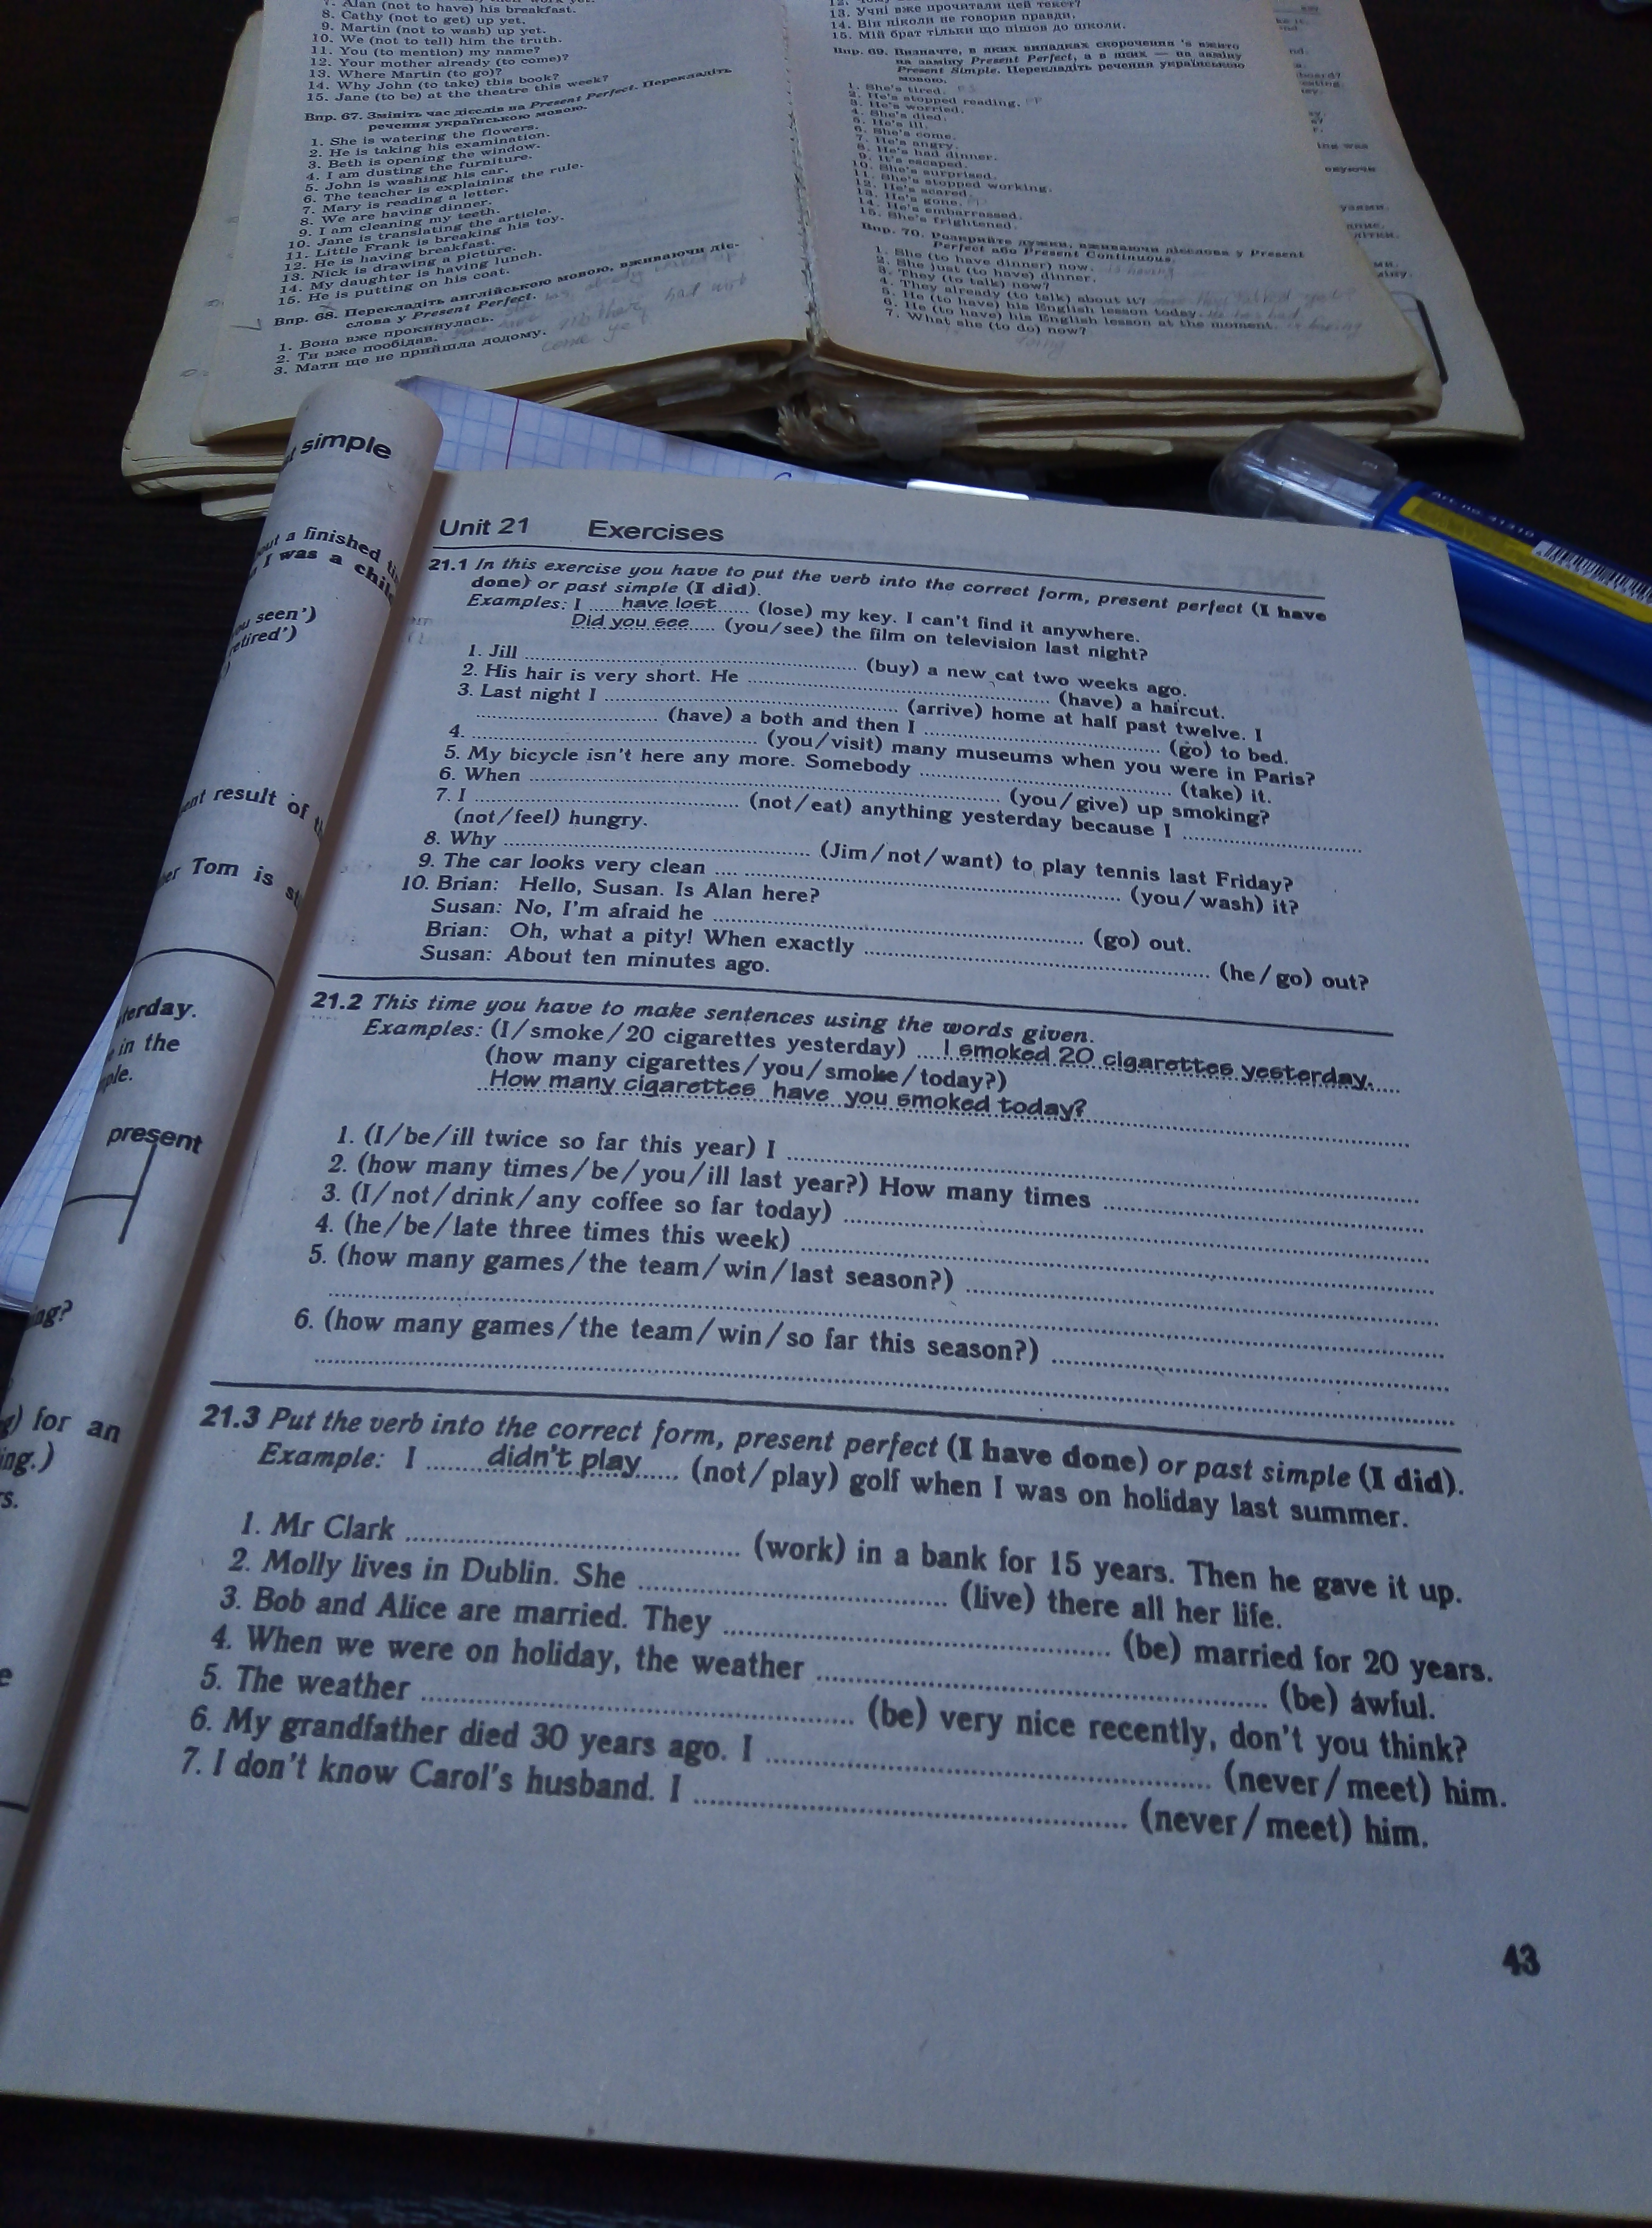 7. Alan (not to have) his breakfast.
8. Cathy (not to get) up yet.
9. Martin (not to wash) up yet.
10. We (not to tell) him the truth.
11. You (to mention) my name?
12. Your mother already (to come)?
13. Where Martin (to go)?
14. Why John (to take) this book?
15. Jane (to be) at the theatre this week?
Впр. 67. Змініть час дієслів на Present Perfect. Перекладіть
речення українською мовою.
1. She is watering the flowers.
2. He is taking his examination.
3. Beth is opening the window.
4. I am dusting the furniture.
5. John is washing his car.
6. The teacher is explaining the rule.
7. Mary is reading a letter.
8. We are having dinner.
9. I am cleaning my teeth.
10. Jane is translating the article.
11. Little Frank is breaking his toy.
12. He is having breakfast.
13. Nick is drawing a picture.
14. My daughter is having lunch.
15. He is putting on his coat.
Впр. 68. Перекладіть англійською мовою, вживаючи діє-
слова у Present Perfect.
1. Вона вже прокинулась.
2. Ти вже пообідав.
3. Мати ще не прийшла додому.
13. Учні вже прочитали цей текст?
14. Він ніколи не говорив правди.
15. Мій брат тільки що пішов до школи.
Впр. 69. Визначте, в яких випадках скорочення 's вжито
на заміну Present Perfect, а в яких — на заміну
Present Simple. Перекладіть речення українською
мовою.
1. She's tired.
2. He's stopped reading.
3. He's worried.
4. She's died.
5. He's ill.
6. She's come.
7. He's angry.
8. He's had dinner.
9. It's escaped.
10. She's surprised.
11. She's stopped working.
12. He's scared.
13. He's gone.
14. He's embarrassed.
15. She's frightened.
Впр. 70. Розкрийте дужки, вживаючи дієслова у Present
Perfect або Present Continuous.
1. She (to have dinner) now. is having
2. She just (to have) dinner.
3. They (to talk) now?
4. They already (to talk) about it?
5. He (to have) his English lesson today.
6. He (to have) his English lesson at the moment. is having
7. What she (to do) now?
doing
simple
Unit 21 Exercises
21.1 In this exercise you have to put the verb into the correct form, present perfect (I have
done) or past simple (I did).
Examples: I ....have lost..... (lose) my key. I can't find it anywhere.
Did you see.... (you/see) the film on television last night?
1. Jill .......... (buy) a new cat two weeks ago.
2. His hair is very short. He .......... (have) a haircut.
3. Last night I .......... (arrive) home at half past twelve. I
.......... (have) a both and then I .......... (go) to bed.
4. .......... (you/visit) many museums when you were in Paris?
5. My bicycle isn't here any more. Somebody .......... (take) it.
6. When .......... (you/give) up smoking?
7. I .......... (not/eat) anything yesterday because I ..........
(not/feel) hungry.
8. Why .......... (Jim/not/want) to play tennis last Friday?
9. The car looks very clean .... .......... (you/wash) it?
10. Brian: Hello, Susan. Is Alan here?
Susan: No, I'm afraid he .......... (go) out.
Brian: Oh, what a pity! When exactly .......... (he/go) out?
Susan: About ten minutes ago.
21.2 This time you have to make sentences using the words given.
Examples: (I/smoke/20 cigarettes yesterday) ....I smoked 20 cigarettes yesterday.....
(how many cigarettes/you/smoke/today?)
How many cigarettes have you smoked today?..........
1. (I/be/ill twice so far this year) I ..........
2. (how many times/be/you/ill last year?) How many times ..........
3. (I/not/drink/any coffee so far today) ..........
4. (he/be/late three times this week) ..........
5. (how many games/the team/win/last season?) ..........
..........
6. (how many games/the team/win/so far this season?) ..........
..........
21.3 Put the verb into the correct form, present perfect (I have done) or past simple (I did).
Example: I ......didn't play..... (not/play) golf when I was on holiday last summer.
1. Mr Clark .......... (work) in a bank for 15 years. Then he gave it up.
2. Molly lives in Dublin. She .......... (live) there all her life.
3. Bob and Alice are married. They .......... (be) married for 20 years.
4. When we were on holiday, the weather .......... (be) awful.
5. The weather .......... (be) very nice recently, don't you think?
6. My grandfather died 30 years ago. I .......... (never/meet) him.
7. I don't know Carol's husband. I .......... (never/meet) him.
43
a finished
I was a
seen')
result of
Tom is
in the
present
for an